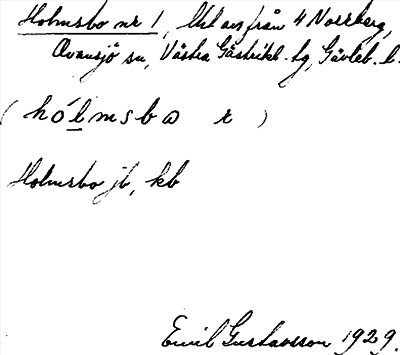 Holmsbo nr 1, Utl avs från 4 Norrberg,
Ovansjö sn, Västra Gästrikl. tg, Gävleb. l.
(hólmsbo r)
Holmsbo jb, kb
Emil Gustavsson 1929.